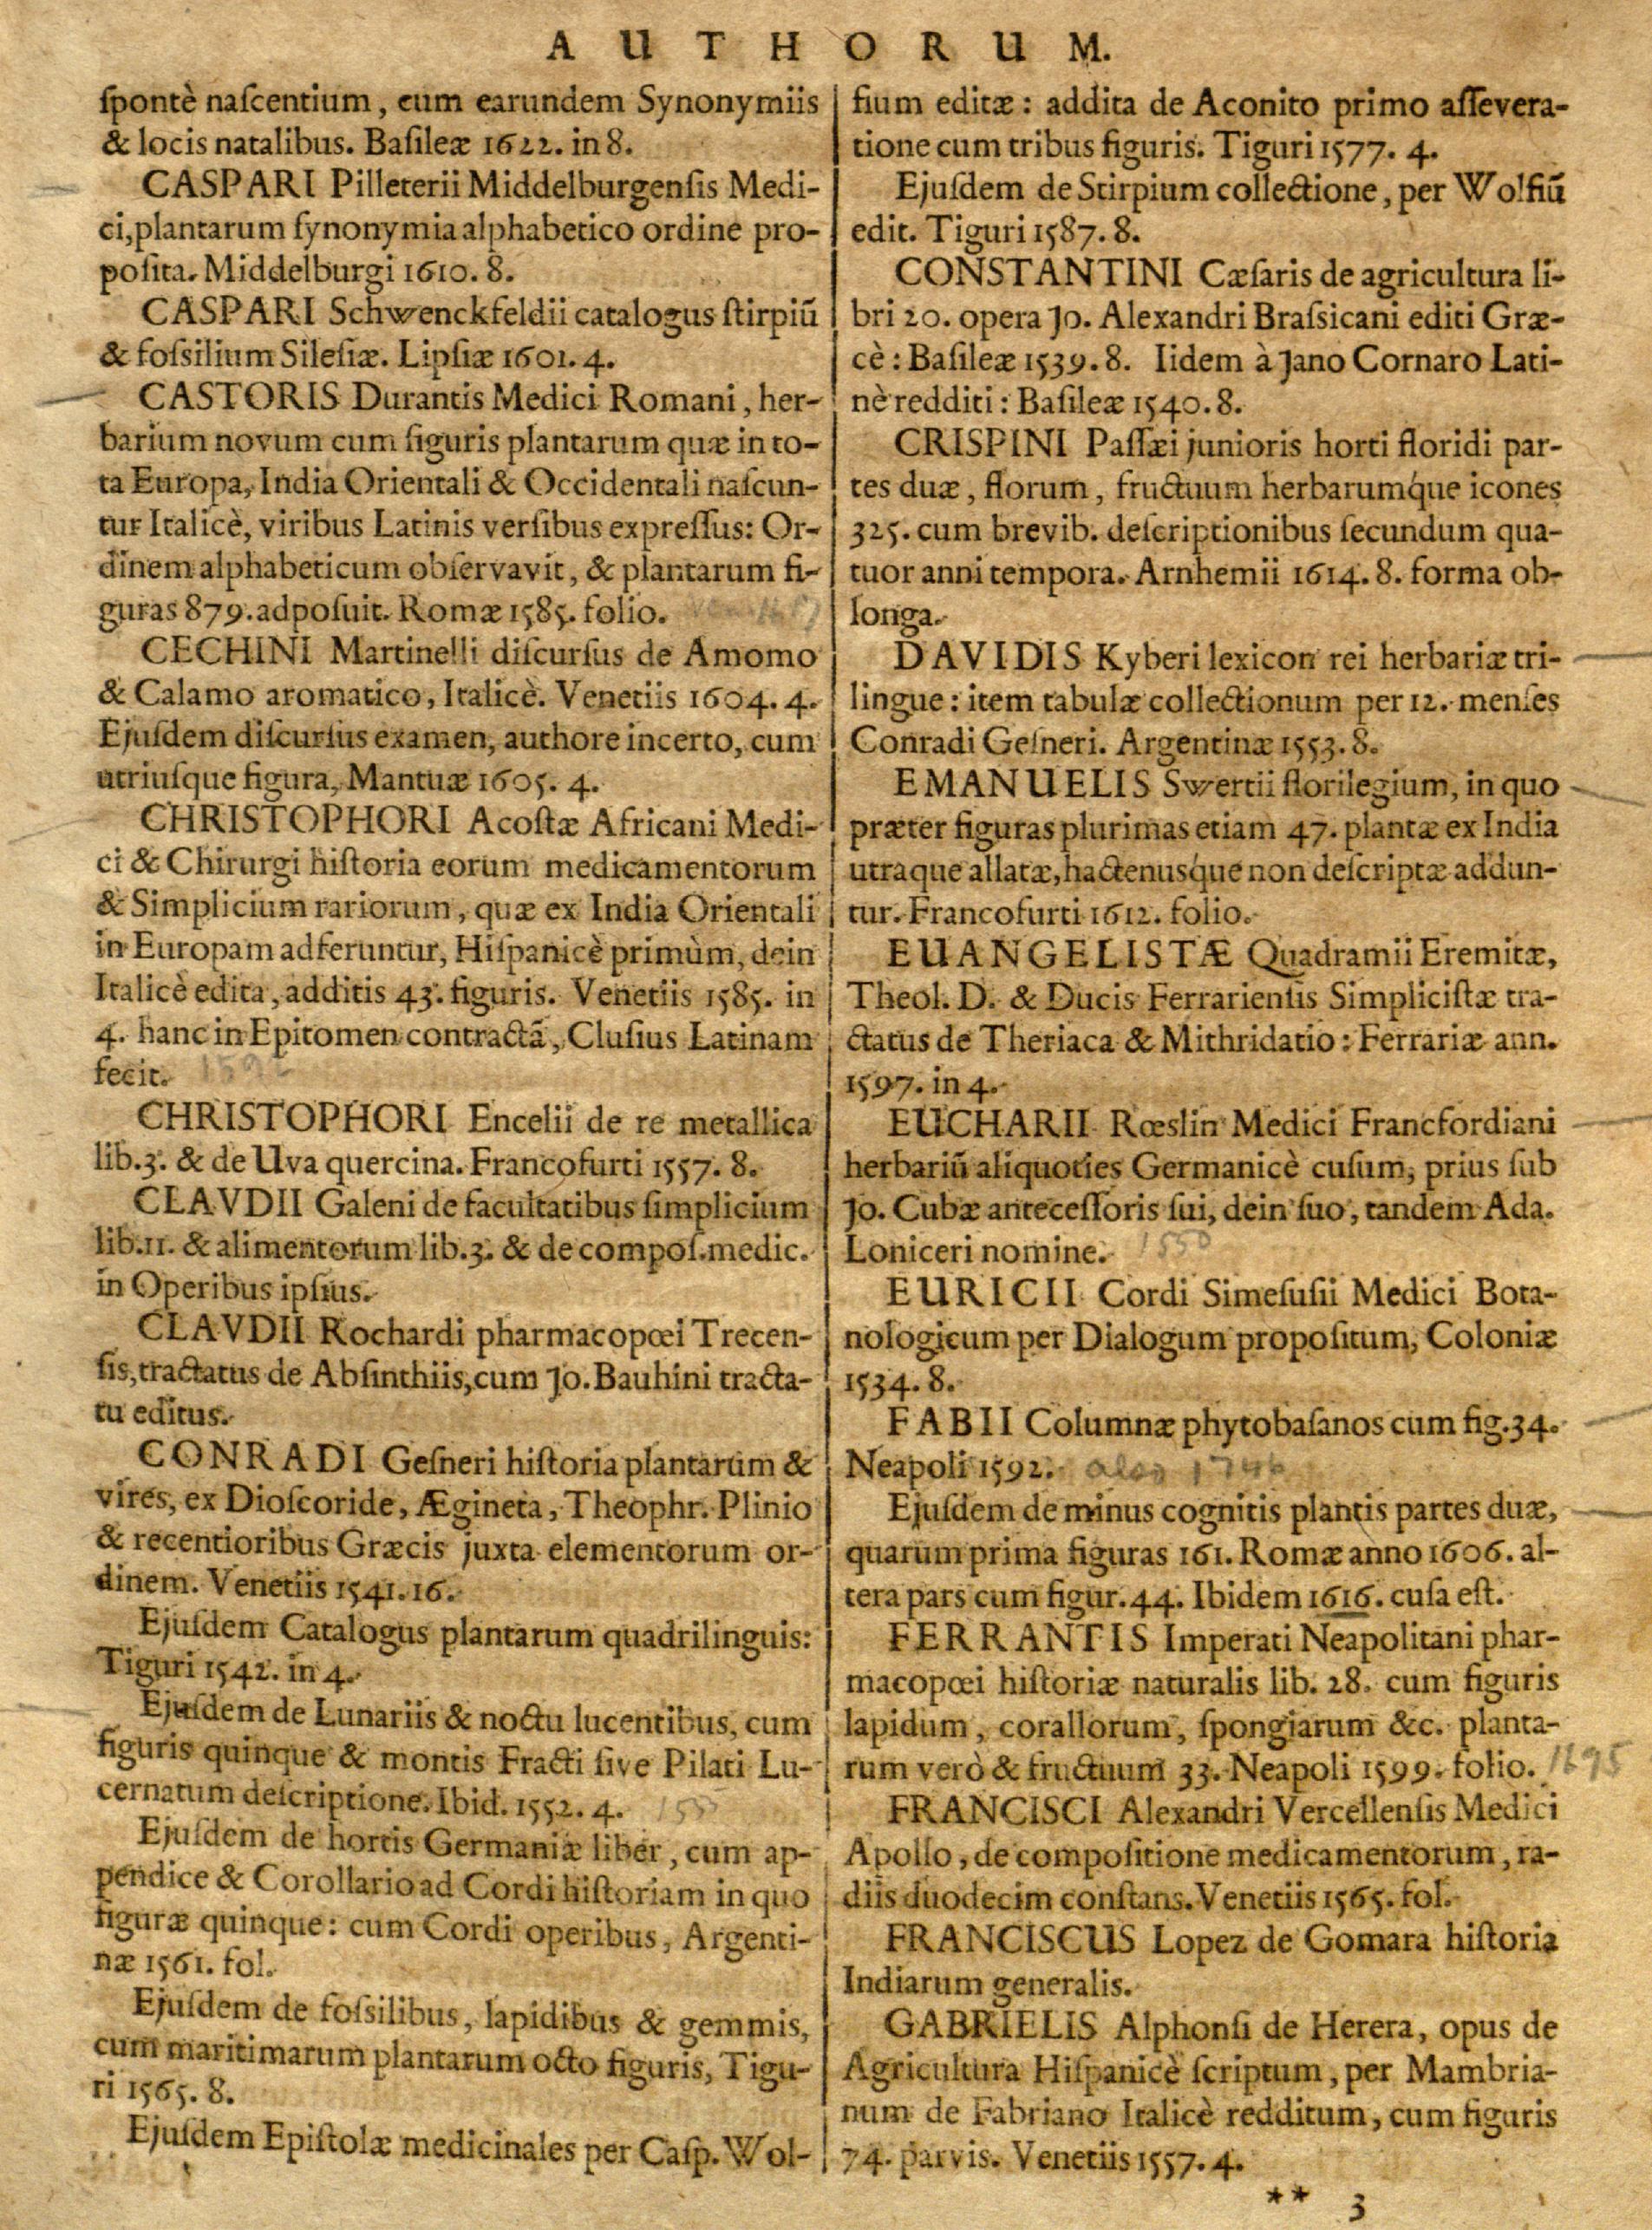 AUTHORUM.
ſpontè naſcentium, cum earundem Synonymiis
& locis natalibus. Baſileæ 1622. in 8.
CASPARI Pilleterii Middelburgenſis Medi-
ci, plantarum ſynonymia alphabetico ordine pro-
poſita. Middelburgi 1610. 8.
CASPARI Schwenckfeldii catalogus ſtirpiũ
& foſsilium Sileſiæ. Lipſiæ 1601. 4.
CASTORIS Durantis Medici Romani, her-
barium novum cum figuris plantarum quæ in to-
ta Europa, India Orientali & Occidentali naſcun-
tur Italicè, viribus Latinis verſibus expreſſus: Or-
dinem alphabeticum obſervavit, & plantarum fi-
guras 879. adpoſuit. Romæ 1585. folio.
CECHINI Martinelli diſcurſus de Amomo
& Calamo aromatico, Italicè. Venetiis 1604. 4.
Ejuſdem diſcurſus examen, authore incerto, cum
utriuſque figura, Mantuæ 1605. 4.
CHRISTOPHORI Acoſtæ Africani Medi-
ci & Chirurgi hiſtoria eorum medicamentorum
& Simplicium rariorum, quæ ex India Orientali
in Europam adferuntur, Hiſpanicè primùm, dein
Italicè edita, additis 43. figuris. Venetiis 1585. in
4. hanc in Epitomen contractã, Cluſius Latinam
fecit. 1592
CHRISTOPHORI Encelii de re metallica
lib. 3. & de Uva quercina. Francofurti 1557. 8.
CLAVDII Galeni de facultatibus ſimplicium
lib. 11. & alimentorum lib. 3. & de compoſ. medic.
in Operibus ipſius.
CLAVDII Rochardi pharmacopœi Trecen-
ſis, tractatus de Abſinthiis, cum Jo. Bauhini tracta-
tu editus.
CONRADI Geſneri hiſtoria plantarum &
vires, ex Dioſcoride, Ægineta, Theophr. Plinio
& recentioribus Græcis juxta elementorum or-
dinem. Venetiis 1541. 16.
Ejuſdem Catalogus plantarum quadrilinguis:
Tiguri 1542. in 4.
Ejuſdem de Lunariis & noctu lucentibus, cum
figuris quinque & montis Fracti ſive Pilati Lu-
cernatum deſcriptione. Ibid. 1552. 4. 1555
Ejuſdem de hortis Germaniæ liber, cum ap-
pendice & Corollario ad Cordi hiſtoriam in quo
figuræ quinque: cum Cordi operibus, Argenti-
næ 1561. fol.
Ejuſdem de foſsilibus, lapidibus & gemmis,
cum maritimarum plantarum octo figuris, Tigu-
ri 1565. 8.
Ejuſdem Epiſtolæ medicinales per Caſp. Wol-
fium editæ: addita de Aconito primo aſſevera-
tione cum tribus figuris. Tiguri 1577. 4.
Ejuſdem de Stirpium collectione, per Wolfiũ
edit. Tiguri 1587. 8.
CONSTANTINI Cæſaris de agricultura li-
bri 20. opera Jo. Alexandri Braſsicani editi Græ-
cè: Baſileæ 1539. 8. Iidem à Jano Cornaro Lati-
nè redditi: Baſileæ 1540. 8.
CRISPINI Paſſæi junioris horti floridi par-
tes duæ, florum, fructuum herbarumq́ue icones
325. cum brevib. deſcriptionibus ſecundum qua-
tuor anni tempora. Arnhemii 1614. 8. forma ob-
longa.
DAVIDIS Kyberi lexicon rei herbariæ tri-
lingue: item tabulæ collectionum per 12. menſes
Conradi Geſneri. Argentinæ 1553. 8.
EMANUELIS Swertii florilegium, in quo
præter figuras plurimas etiam 47. plantæ ex India
utraque allatæ, hactenusq́ue non deſcriptæ addun-
tur. Francofurti 1612. folio.
EUANGELISTÆ Quadramii Eremitæ,
Theol. D. & Ducis Ferrarienſis Simpliciſtæ tra-
ctatus de Theriaca & Mithridatio: Ferrariæ ann.
1597. in 4.
EUCHARII Rœslin Medici Francfordiani
herbariũ aliquoties Germanicè cuſum, prius ſub
Jo. Cubæ anteceſſoris ſui, dein ſuo, tandem Ada.
Loniceri nomine. 1550
EURICII Cordi Simeſuſii Medici Bota-
nologicum per Dialogum propoſitum, Coloniæ
1534. 8.
FABII Columnæ phytobaſanos cum fig. 34.
Neapoli 1592. also 1746
Ejuſdem de minus cognitis plantis partes duæ,
quarum prima figuras 161. Romæ anno 1606. al-
tera pars cum figur. 44. Ibidem 1616. cuſa eſt.
FERRANTIS Imperati Neapolitani phar-
macopœi hiſtoriæ naturalis lib. 28. cum figuris
lapidum, corallorum, ſpongiarum &c. planta-
rum verò & fructuum 33. Neapoli 1599. folio. 1695
FRANCISCI Alexandri Vercellenſis Medici
Apollo, de compoſitione medicamentorum, ra-
diis duodecim conſtans. Venetiis 1565. fol.
FRANCISCUS Lopez de Gomara hiſtoria
Indiarum generalis.
GABRIELIS Alphonſi de Herera, opus de
Agricultura Hiſpanicè ſcriptum, per Mambria-
num de Fabriano Italicè redditum, cum figuris
74. parvis. Venetiis 1557. 4.
** 3